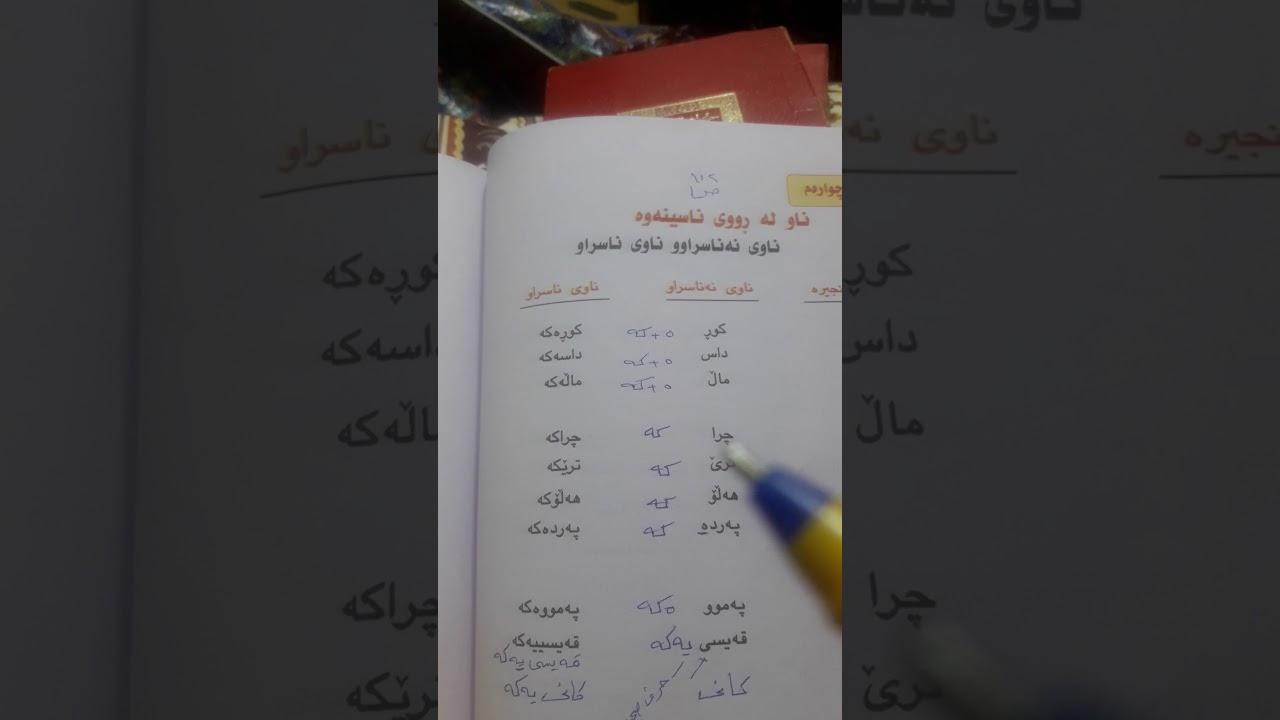 ١٠٢
چوارەم
ناو لە ڕووی ناسینەوە
ناوی نەناسراوو ناوی ناسراو
نجیرە ناوی نەناسراو ناوی ناسراو
کوڕ ە + کە کوڕەکە
داس ە + کە داسەکە
ماڵ ە + کە ماڵەکە
چرا کە چراکە
ترێ کە ترێکە
هەڵۆ کە هەڵۆکە
پەردە کە پەردەکە
پەموو ەکە پەمووەکە
قەیسی یەکە قەیسییەکە
قەیسی یەکە
کانی کانی یەکە